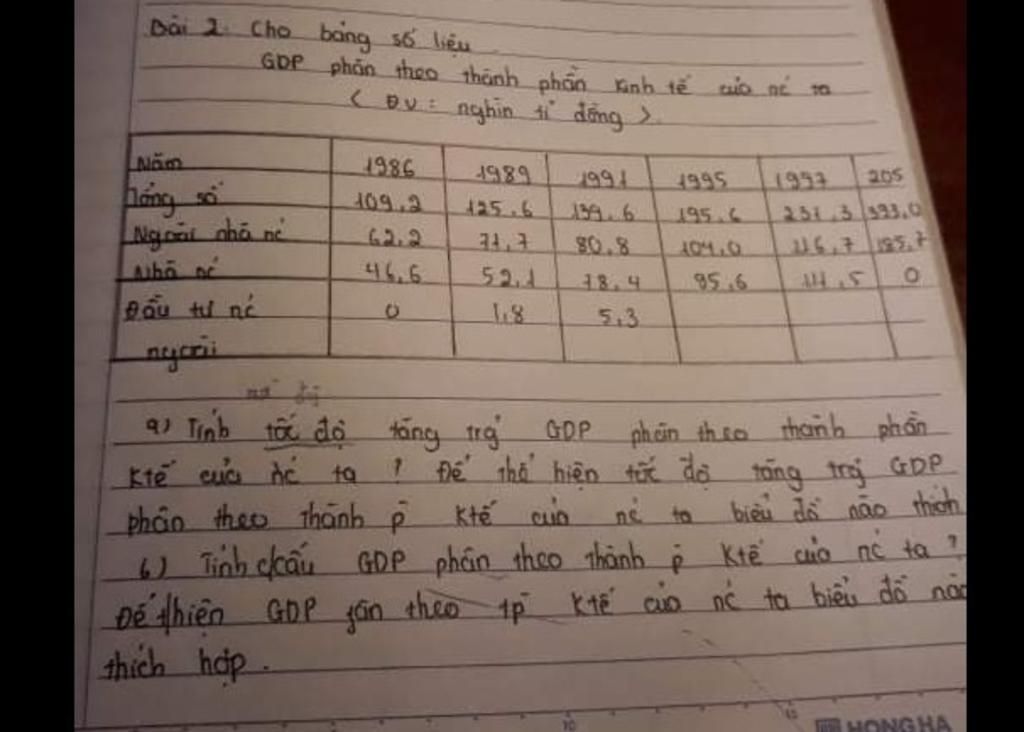 Bài 2. Cho bảng số liệu
GDP phân theo thành phần kinh tế của nc ta
( ĐV : nghìn tỉ đồng ).
Năm 1986 1989 1991 1995 1997 205
Tổng số 109,2 125,6 139,6 195,6 231,3 393,0
Ngoài nhà nc 62,2 71,7 80,8 104,0 116,7 185,7
Nhà nc 46,6 52,1 78,4 95,6 111,5 0
Đầu tư nc 0 1,8 5,3
ngoài
a) Tính tốc độ tăng trg GDP phân theo thành phần
Ktế của nc ta ? Để thể hiện tốc độ tăng trg GDP
phân theo thành p Ktế của nc ta biểu đồ nào thích
b) Tính c/cấu GDP phân theo thành p Ktế của nc ta ?
Để thiện GDP fân theo tp Ktế của nc ta biểu đồ nào
thích hợp.
10
15
HONG HA